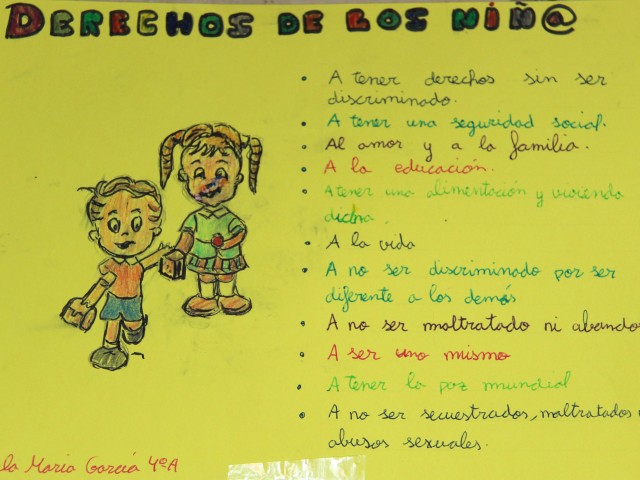 DERECHOS DE LOS NIÑ@
• A tener derechos sin ser
discriminado.
• A tener una seguridad social.
• Al amor y a la familia.
• A la educación.
• A tener una alimentación y vivienda
dicna.
• A la vida
• A no ser discriminado por ser
diferente a los demás
• A no ser maltratado ni abando
• A ser uno mismo
• A tener la paz mundial
• A no ser secuestrados, maltratados
abusos sexuales.
la Maria García 4ºA